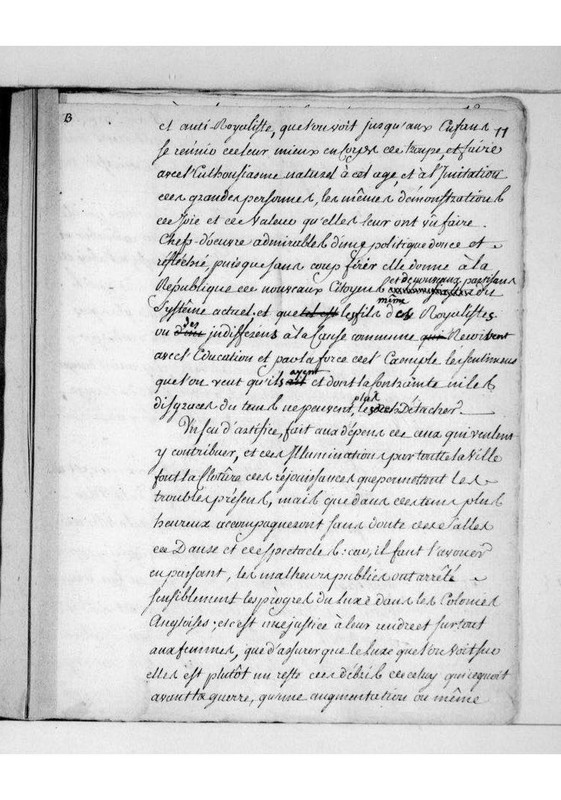 B
11
et anti Royaliste, que l'on voit jusqu'aux Enfans
se reunir de leur mieux en Corps de troupe, et faire
avec l'enthousiasme naturel à cet age, et à l'Imitation
des grandes personnes, les mêmes démonstrations
de Joie et de Valeur qu'elles leur ont vû faire.
Chef-d'oeuvre admirable d'une politique douce et
réfléchie, puisque sans coup férir elle donne à la
République de nouveaux Citoyens et de nouveaux partisans du
Systême actuel, et que même les fils des Royalistes
ou des indifférens à la Cause commune reçoivent
avec l'Education et par la force de l'Exemple les sentimens
que l'on veut qu'ils ayent et dont la contrainte ni les
disgraces du tems ne peuvent plus les Détacher.
Un feu d'artifice, fait aux dépens de ceux qui veulent
y contribuer, et des Illuminations par toutte la Ville
font la clotûre des réjouissances que permettent les
troubles présens, mais que dans des tems plus
heureux accompagneront sans doute des Salles
de Danse et des Spectacles: car, il faut l'avouer
en passant, les malheurs publics ont arrêté
sensiblement les progres du luxe dans les Colonies
Angloises; et c'est une justice à leur rendre et surtout
aux femmes, que d'assurer que le luxe que l'on voit sur
elles est plutôt un reste des débris de celuy qui regnoit
avant la guerre, qu'une augmentation ou même